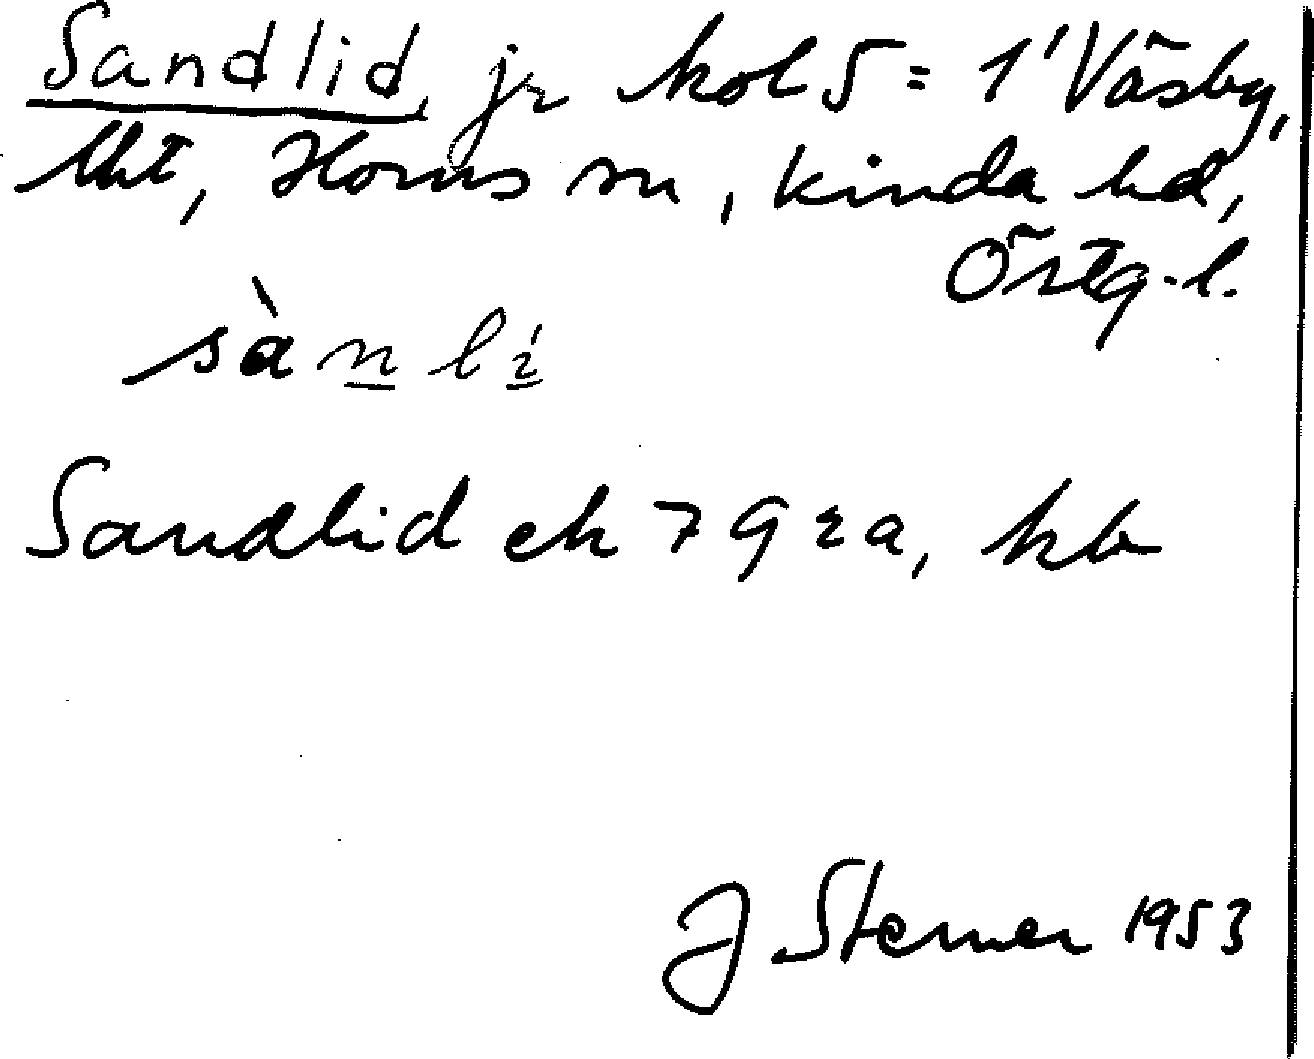 Sandlid, jr kol 5 = 1' Väsby,
Uht, Horns sn, Kinda hd,
Östg.l.
sànlí
Sandlid ek 79 za, kb
J Sterner 1953